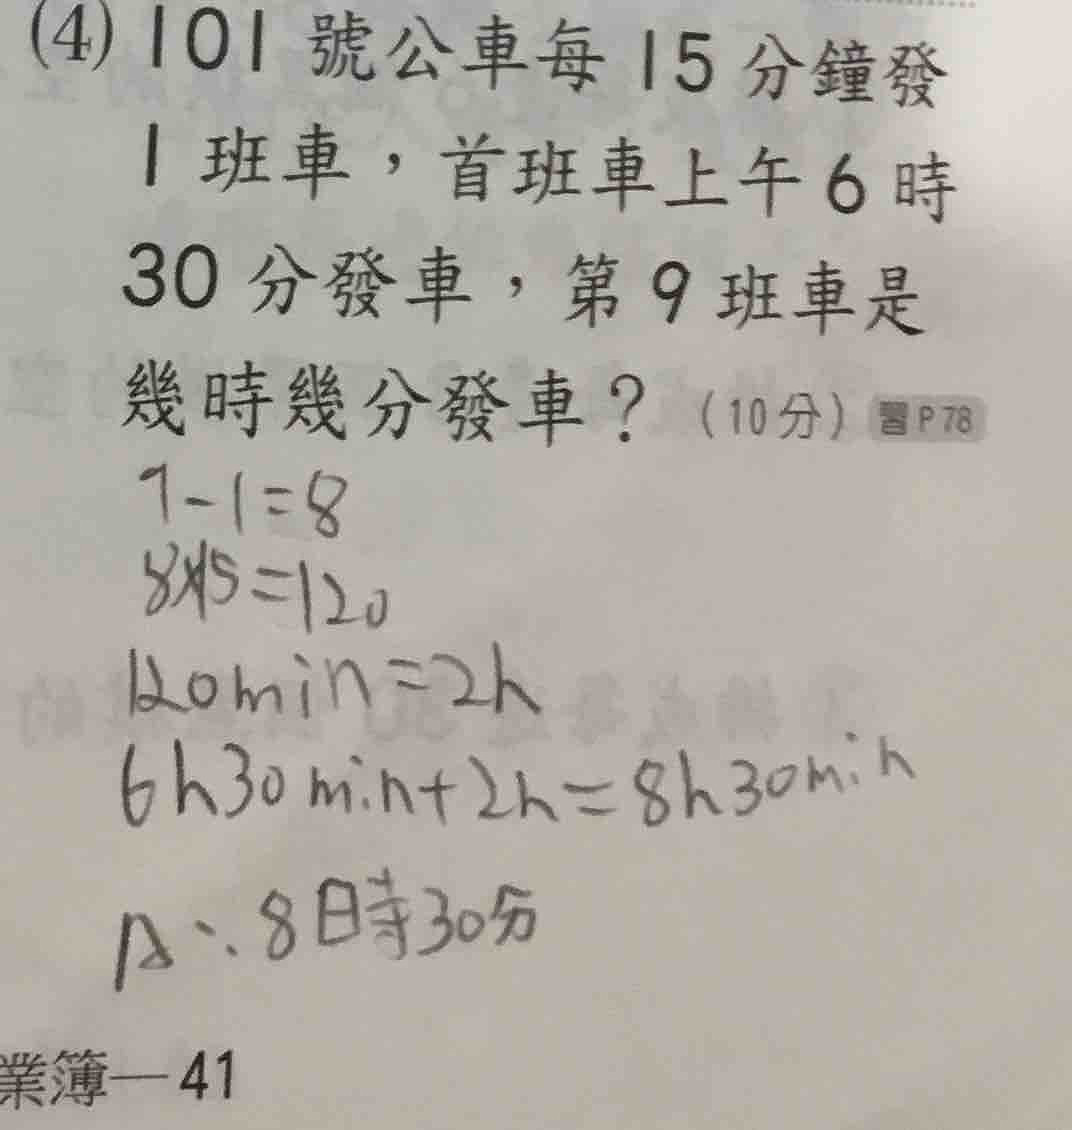 (4) 101 號公車每 15 分鐘發
1 班車，首班車上午 6 時
30 分發車，第 9 班車是
幾時幾分發車？（10分）習P78
9-1=8
8×15=120
120min=2h
6h30min+2h=8h30min
A：8時30分
業簿—41